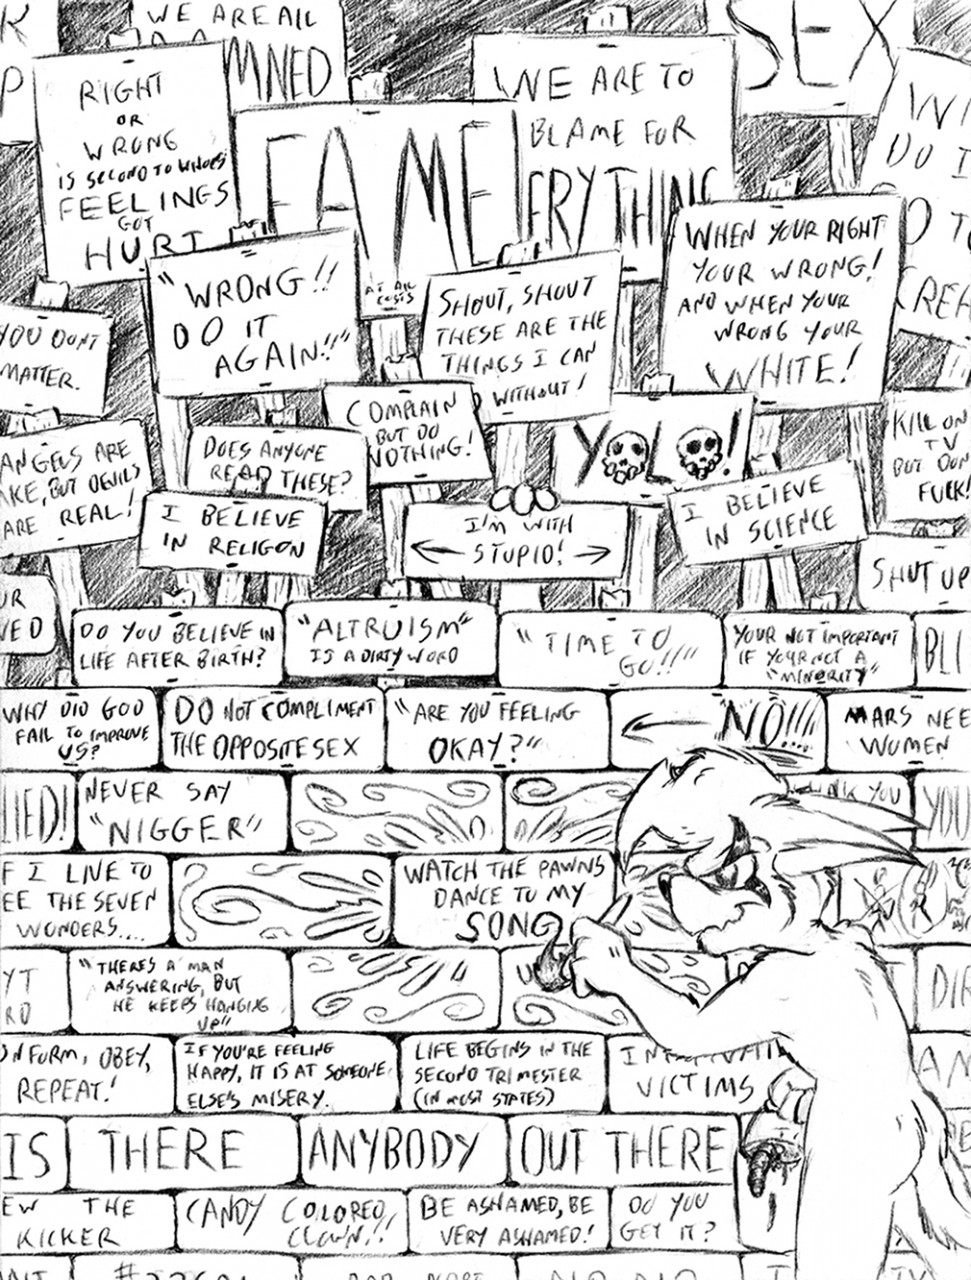 WE ARE ALL
DAMNED
SEX
RIGHT
OR
WRONG
IS SECOND TO WHOSE
FEELINGS
GOT
HURT
FAME
AT ALL
COSTS
WE ARE TO
BLAME FOR
ERYTHING
DO I
"WRONG!!
DO IT
AGAIN!!"
SHOUT, SHOUT
THESE ARE THE
THINGS I CAN
WITHOUT!
WHEN YOUR RIGHT
YOUR WRONG!
AND WHEN YOUR
WRONG YOUR
WHITE!
YOU DON'T
MATTER.
COMPLAIN
BUT DO
NOTHING!
YOLO!
KILL ON
TV
BUT DON'T
FUCK!
ANGELS ARE
AKE, BUT DEVILS
ARE REAL!
DOES ANYONE
READ THESE?
I BELIEVE
IN RELIGON
I'M WITH
STUPID!
I BELIEVE
IN SCIENCE
SHUT UP
DO YOU BELIEVE IN
LIFE AFTER BIRTH?
"ALTRUISM"
IS A DIRTY WORD
"TIME TO
GO!!"
YOUR NOT IMPORTANT
IF YOUR NOT A
"MINORITY"
BLI
WHY DID GOD
FAIL TO IMPROVE
US?
DO NOT COMPLIMENT
THE OPPOSITE SEX
"ARE YOU FEELING
OKAY?"
NO!!!!....
MARS NEE
WOMEN
LIED!
NEVER SAY
"NIGGER"
YOU
YOU
F I LIVE TO
EE THE SEVEN
WONDERS....
WATCH THE PAWNS
DANCE TO MY
SONG
"THERES A MAN
ANSWERING, BUT
HE KEEPS HANGING
UP"
DI
ONFORM, OBEY,
REPEAT!
IF YOU'RE FEELING
HAPPY, IT IS AT SOMEONE
ELSE'S MISERY.
LIFE BEGINS IN THE
SECOND TRIMESTER
(IN MOST STATES)
VICTIMS
AN
IS THERE ANYBODY OUT THERE
EW THE
KICKER
CANDY COLORED
CLOWN!!
BE ASHAMED, BE
VERY ASHAMED!
DO YOU
GET IT?